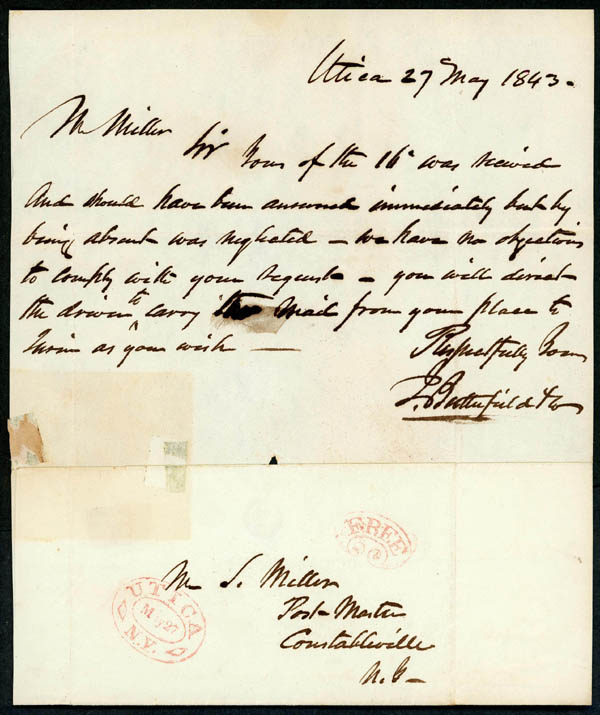 Utica 27 May 1843 -
Mr Miller
Sir Yours of the 16th was recieved
And should have been answered immediately but by
being absent was neglected - we have no objections
to comply with your request - you will direct
the driver to carry the Mail from your place to
Turin as you wish —
Respectfully Yours
J. Butterfield & Co
FREE
Mr S. Miller
Post-Master
Constableville
N.Y-
UTICA
MAY 27
N.Y.